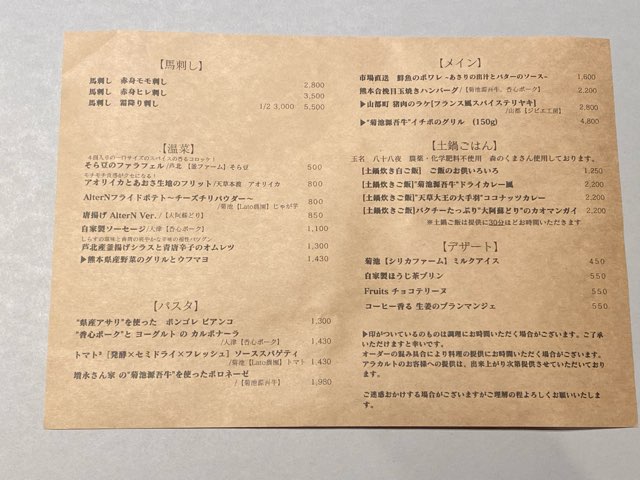 【馬刺し】
馬刺し 赤身モモ刺し 2,800
馬刺し 赤身ヒレ刺し 3,500
馬刺し 霜降り刺し 1/2 3,000 5,500
【温菜】
4個入りの一口サイズのスパイスの香るコロッケ！
そら豆のファラフェル/芦北 【釜ファーム】そら豆 500
モチモチ食感がクセになる！
アオリイカとあおさ生地のフリット/天草本渡 アオリイカ 800
AlterNフライドポテト~チーズチリパウダー~
/菊池【Lato農園】じゃが芋 800
唐揚げ AlterN Ver. /【大阿蘇どり】 850
自家製ソーセージ/人津【香心ポーク】 1,100
しらすの塩味と青唐の爽やかな辛味の相性バツグン
芦北産釜揚げシラスと青唐辛子のオムレツ 1,300
▶熊本県産野菜のグリルとウフマヨ 1,430
【パスタ】
"県産アサリ"を使った ボンゴレ ビアンコ 1,300
"香心ポーク"と ヨーグルト の カルボナーラ
/人津【香心ポーク】 1,430
トマト³［発酵×セミドライ×フレッシュ］ソーススパゲティ
/菊池【Lato農園】トマト 1,430
増永さん家 の"菊池源吾牛"を使ったボロネーゼ
/【菊池源吾牛】 1,980
【メイン】
市場直送 鮮魚のポワレ ~あさりの出汁とバターのソース~ 1,600
熊本合挽目玉焼きハンバーグ/【菊池源吾牛、香心ポーク】 2,200
▶山都町 猪肉のラケ[フランス風スパイステリヤキ] 2,800
/山都【ジビエ工房】
▶"菊池源吾牛"イチボのグリル (150g) 4,800
【土鍋ごはん】
玉名 八十八夜 農薬・化学肥料不使用 森のくまさん使用しております。
[土鍋炊き白ご飯] ご飯のお供いろいろ 1,250
[土鍋炊きご飯]"菊池源吾牛"ドライカレー風 2,200
[土鍋炊きご飯]"天草大王の大手羽"ココナッツカレー 2,200
[土鍋炊きご飯]パクチーたっぷり"大阿蘇どり"のカオマンガイ 2,200
※土鍋ご飯は提供に30分ほどお時間いただきます
【デザート】
菊池［シリカファーム］ミルクアイス 450
自家製ほうじ茶プリン 550
Fruits チョコテリーヌ 550
コーヒー香る 生姜のブランマンジェ 550
▶印がついているものは調理にお時間いただく場合がございます。ご了承
いただけますと幸いです。
オーダーの混み具合により料理の提供にお時間いただく場合がございます。
アラカルトのお客様への提供は、出来上がり次第提供させていただいており
ます。
ご迷惑おかけする場合がございますがご理解の程よろしくお願いいたしま
す。